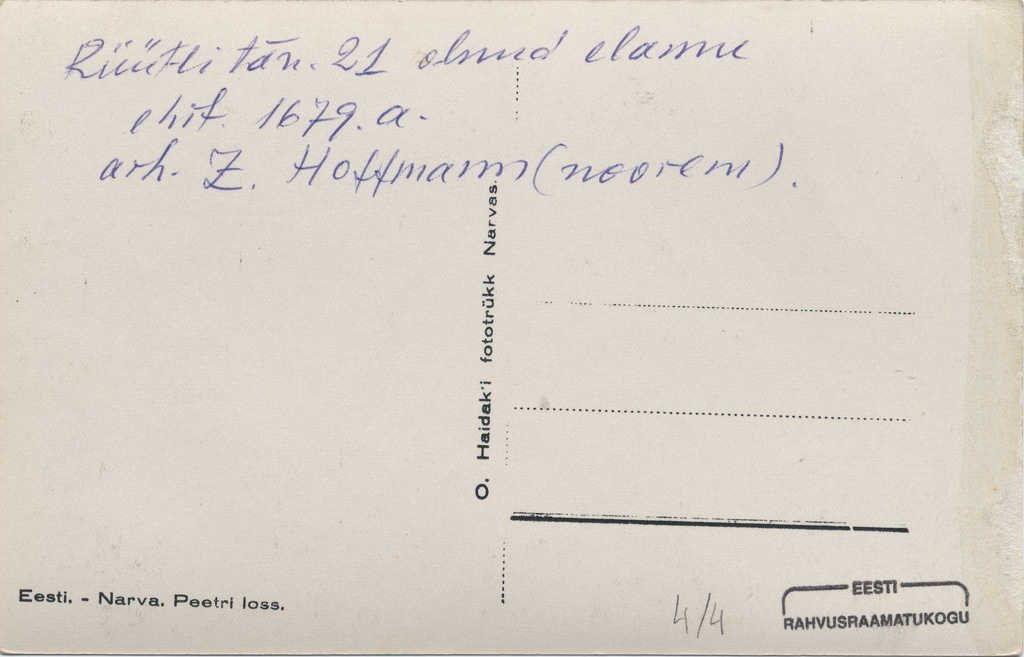 Rüütli tän. 21 olnud elamu
ehit. 1679. a.
arh. Z. Hoffmann (noorem).
O. Haidak'i fototrükk Narvas.
Eesti. - Narva. Peetri loss.
4/4
EESTI
RAHVUSRAAMATUKOGU